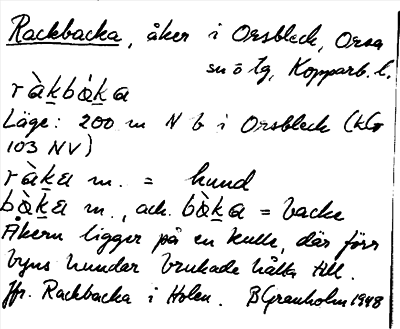 Rackbacka, åker i Orsbleck, Orsa
sn ö tg, Kopparb. l.
ràk̲bàk̲a
Läge: 200 m N b i Orsbleck (kG
103 NV)
ràk̲a m. = hund
bàk̲a m., ack. bàk̲a = backe
Åkern ligger på en kulle, där förr
byns hundar brukade hålla till.
Jfr. Rackbacka i Holen. BGranholm 1948